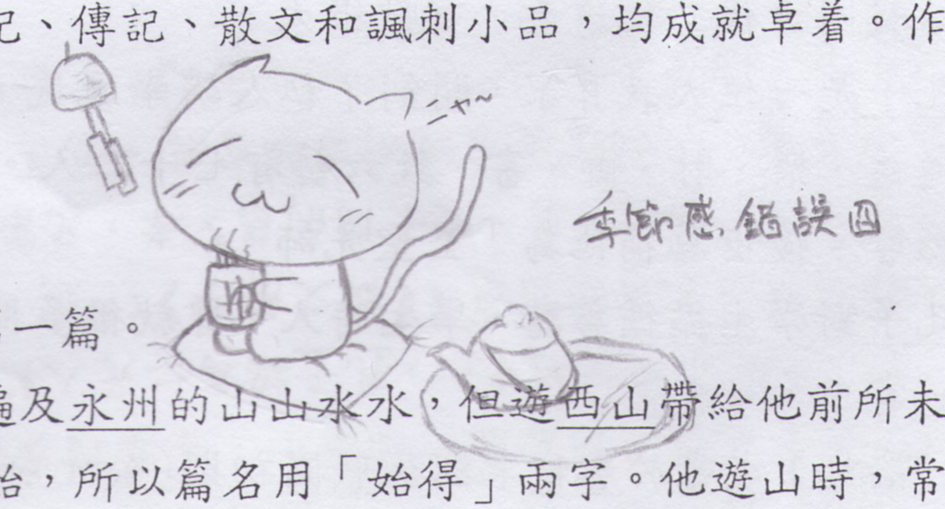 記、傳記、散文和諷刺小品，均成就卓着。作
ニャ~
季節感錯誤囧
ゆ
一篇。
遍及永州的山山水水，但遊西山帶給他前所未
始，所以篇名用「始得」兩字。他遊山時，常